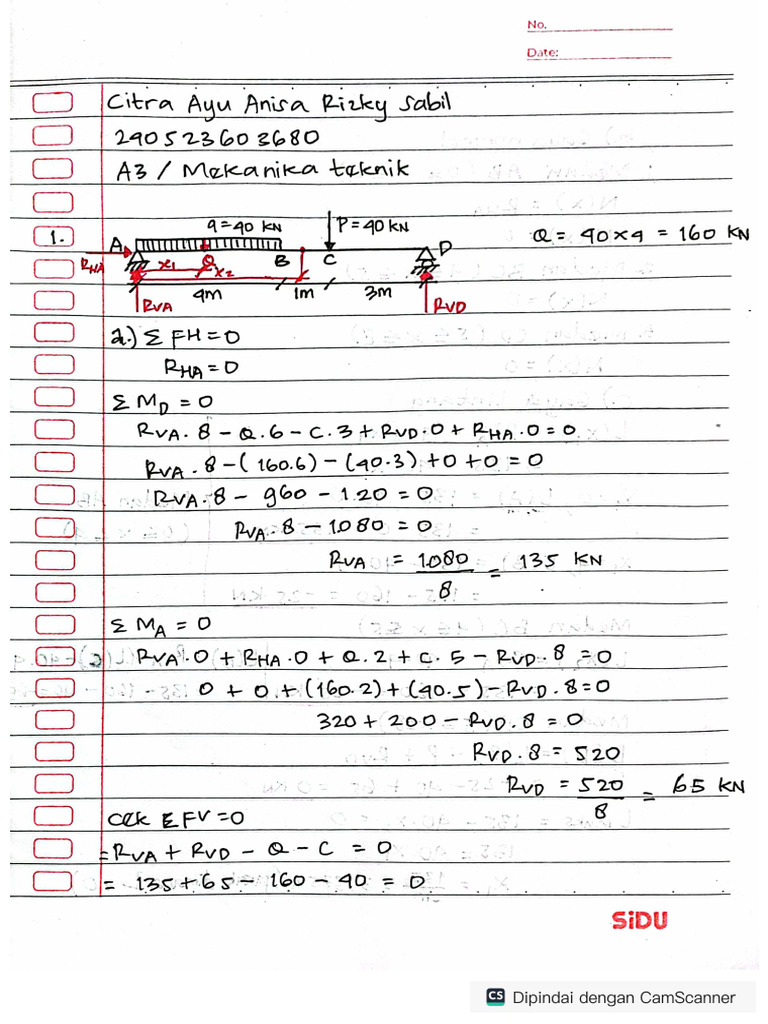 No.
Date:
Citra Ayu Anisa Rizky Sabil
2905523603680
A3 / Mekanika teknik
1. A q=40 KN P=40 KN D Q= 40×4 = 160 KN
RHA x1 Q x2 B C
RVA 4m 1m 3m RVD
a.) Σ FH=0
RHA=0
Σ MD = 0
RVA. 8 - Q.6 - C.3 + RVD.0 + RHA.0 = 0
RVA.8-(160.6)-(40.3)+0+0=0
RVA.8 - 960 - 1.20 = 0
RVA.8 - 1.080 = 0
RVA = 1.080/8 = 135 KN
Σ MA = 0
RVA.0 + RHA.0 + Q.2 + C.5 - RVD.8 = 0
0 + 0 + (160.2)+(40.5)-RVD.8=0
320+200-RVD.8 = 0
RVD.8 = 520
RVD = 520/8 = 65 KN
cek ΣFV=0
=RVA + RVD - Q - C = 0
= 135+65-160-40 = 0
SiDU
CS Dipindai dengan CamScanner